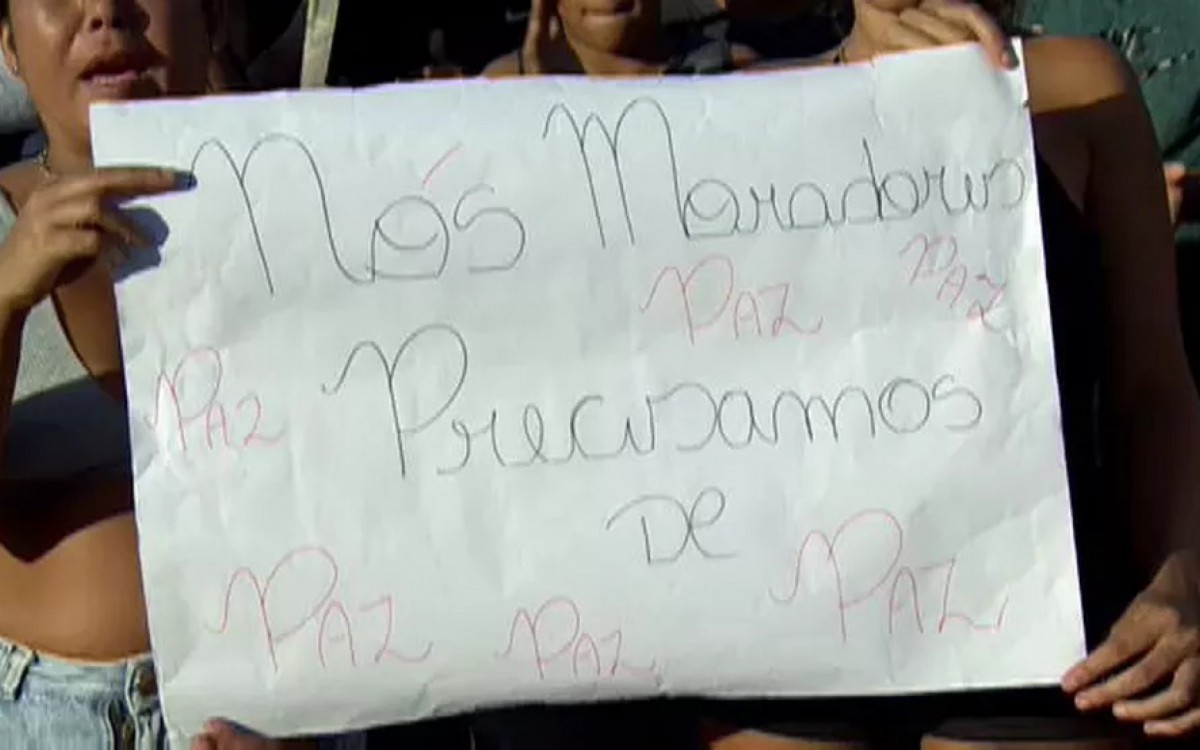 Nós Moradores
PAZ PAZ
PAZ Precisamos
DE
PAZ PAZ PAZ